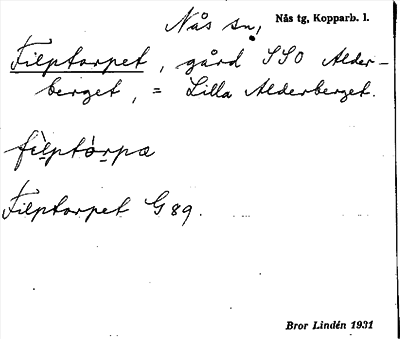 Nås sn, Nås tg, Kopparb. l.
Filptorpet, gård SSO Alder-
berget, = Lilla Alderberget.
fìlptór̠pæ
Filptorpet G 89.
Bror Lindén 1931